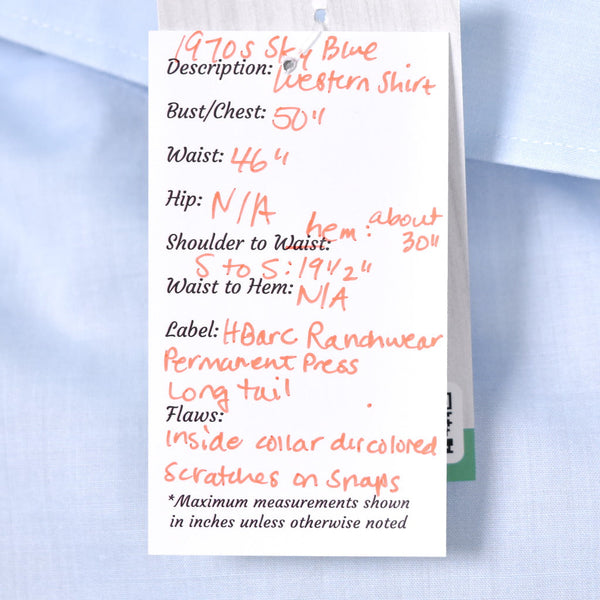 1970s Sky Blue
Description: Western Shirt
Bust/Chest: 50"
Waist: 46"
Hip: N/A
hem: about
Shoulder to Waist: 30"
S to S: 19 1/2"
Waist to Hem: N/A
Label: HBarC Ranchwear
Permanent Press
Long tail
Flaws:
Inside collar discolored
Scratches on snaps
*Maximum measurements shown
in inches unless otherwise noted